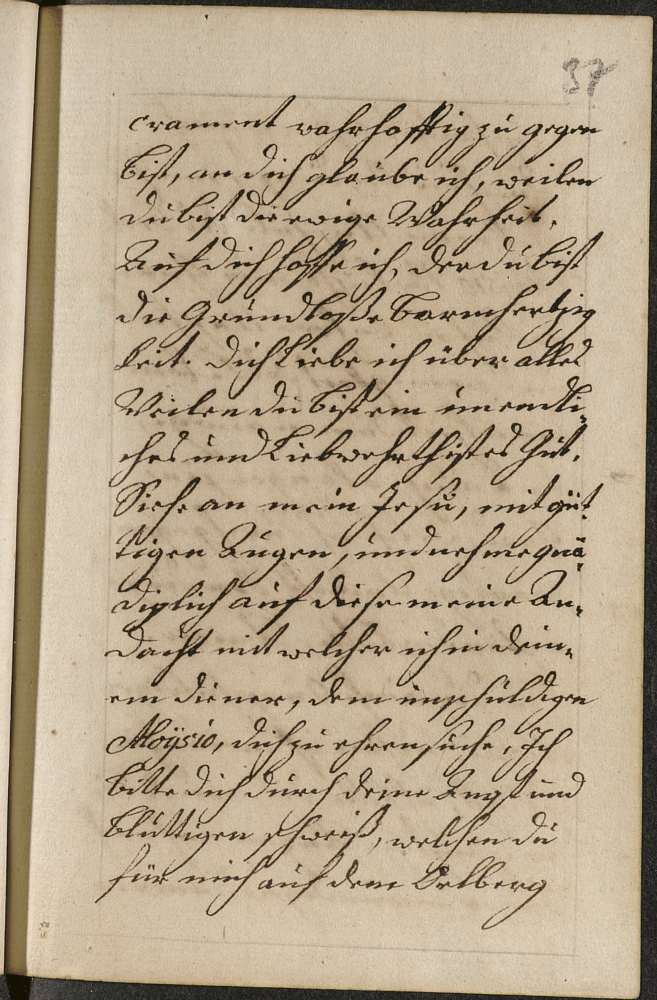 37
crament wahrhafftig zu gegen
bist, an dich glaube ich, weilen
du bist die ewige Wahrheit.
Auf dich hoffe ich, der du bist
die Grundloße Barmhertzig
keit. Dich Liebe ich über alles
Weilen du bist ein unendli„
ches und Liebwehrthistes Gut.
Siehe an mein Jesu, mit güt„
tigen Augen, und nehme gnä„
diglich auf diese meine An„
dacht mit welcher ich in dein„
em diener, dem unschuldigen
Aloÿsio, dich zu ehren suche, Ich
bitte dich durch deine Angst und
bluttigen schweiß, welchen du
für mich auf dem Oelberg